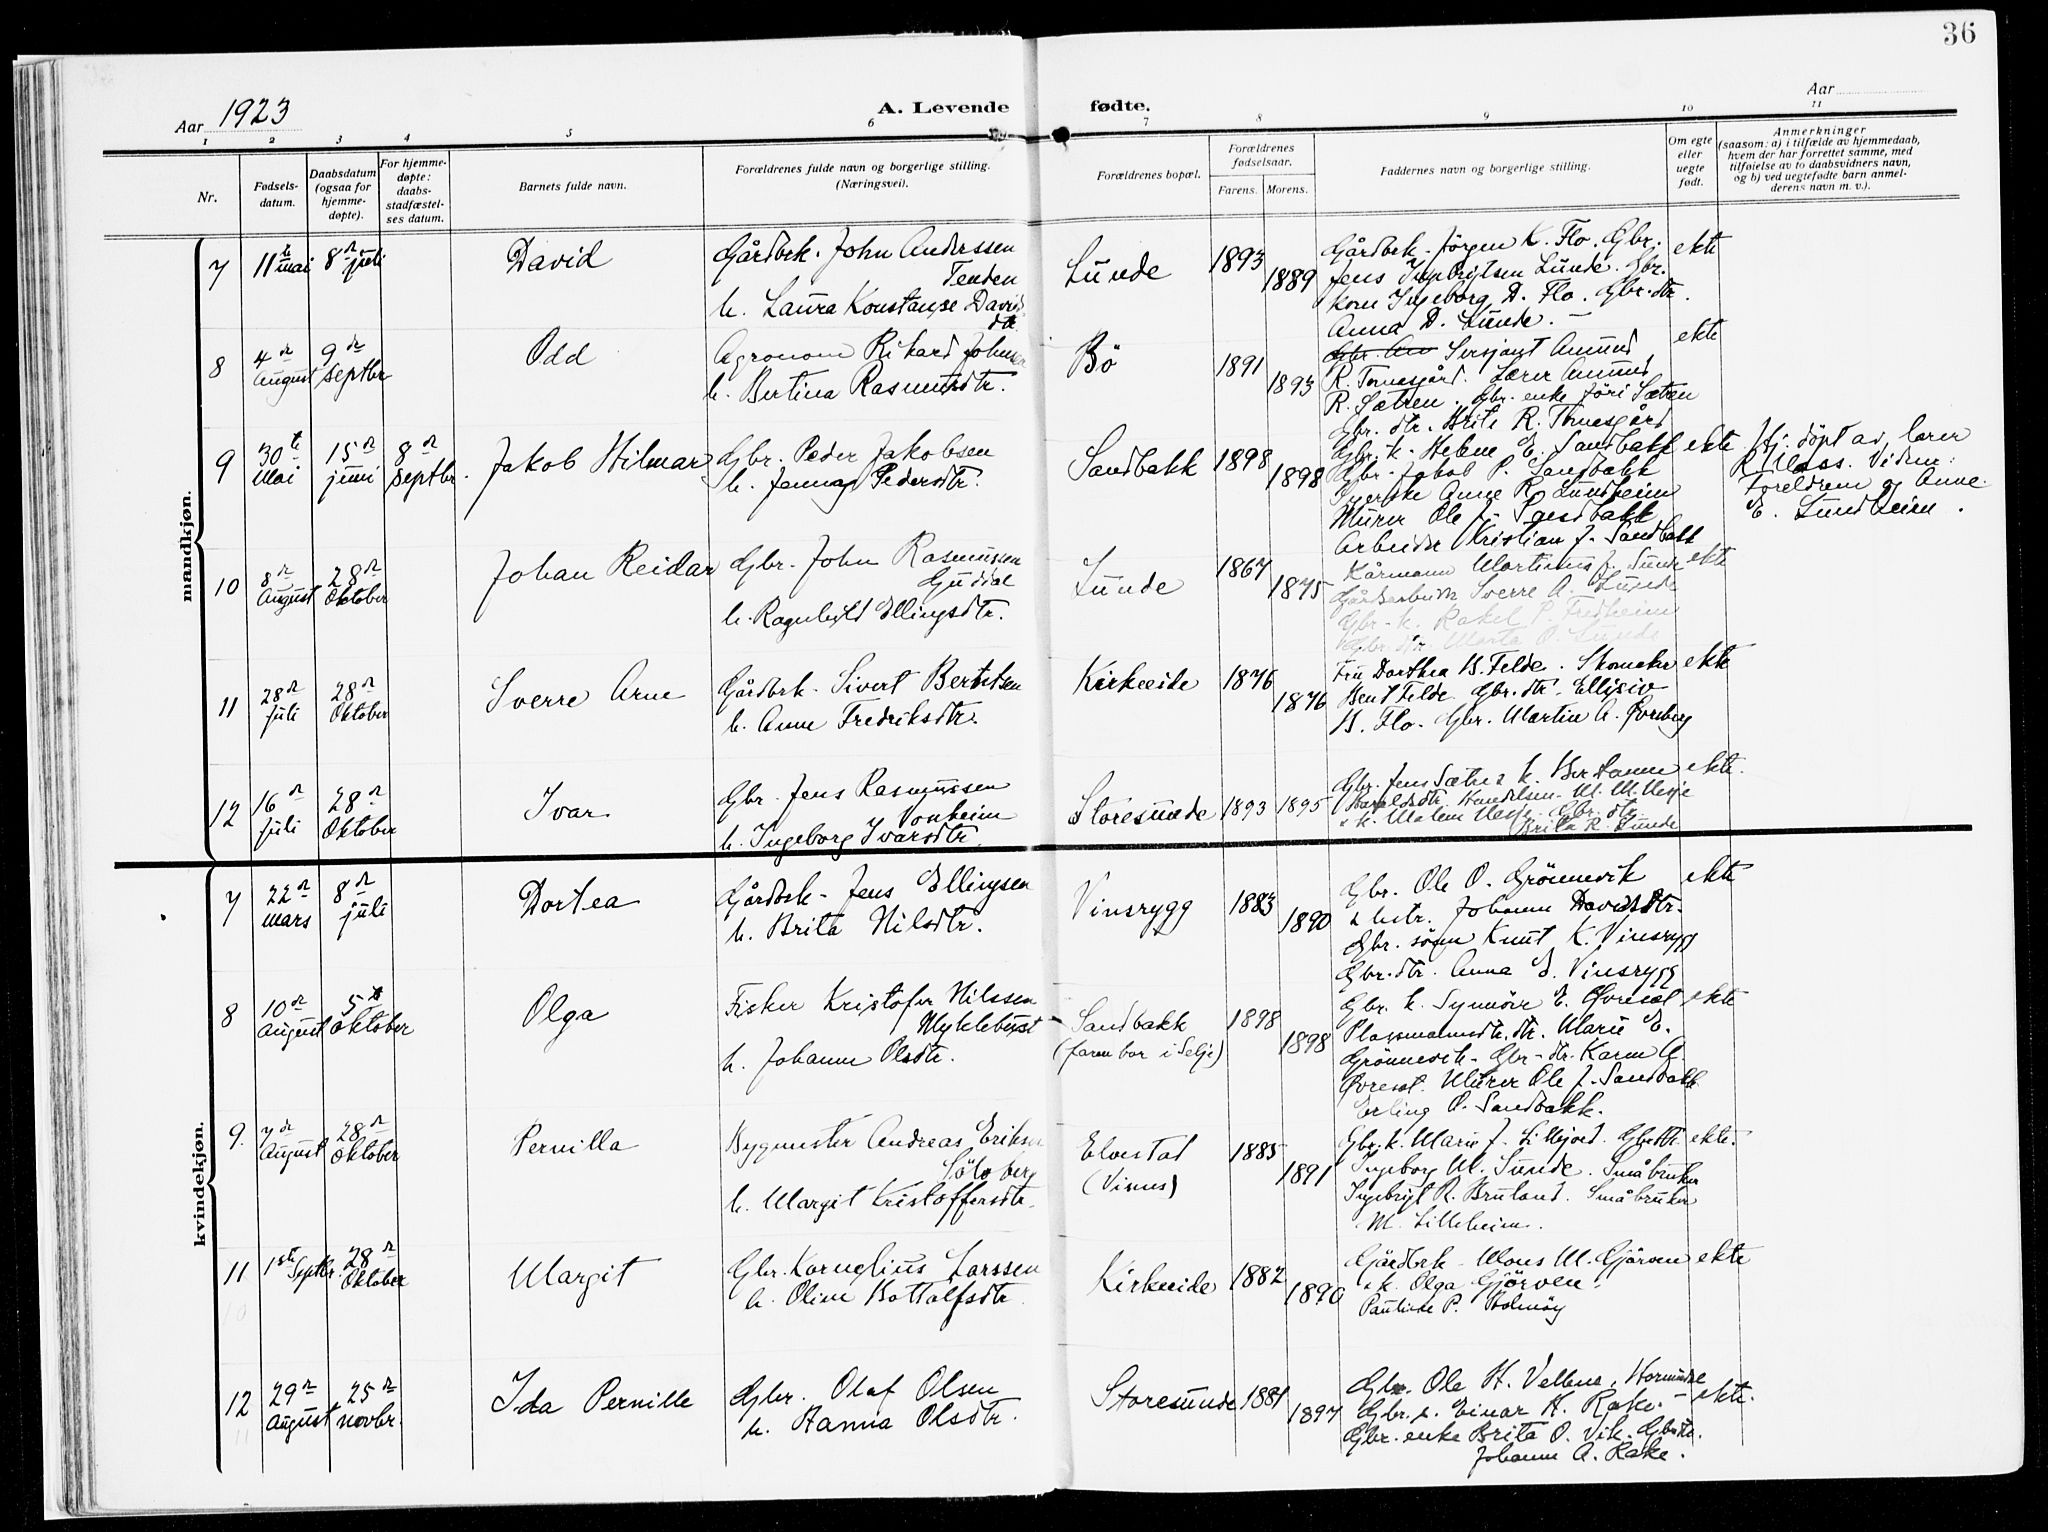 36
Aar 1923
A. Levende fødte.
Aar
1 2 3 4 5 6 7 8 9 10 11
Nr.
Fødsels-
datum.
Daabsdatum
(ogsaa for
hjemme-
døpte).
For hjemme-
døpte:
daabs-
stadfæstel-
ses datum.
Barnets fulde navn.
Forældrenes fulde navn og borgerlige stilling.
(Næringsvei).
Forældrenes bopæl.
Forældrenes
fødselsaar.
Farens. Morens.
Faddernes navn og borgerlige stilling.
Om egte
eller
uegte
født.
Anmerkninger
(saasom: a) i tilfælde av hjemmedaab,
hvem der har forrettet samme, med
tilføielse av to daabsvidners navn,
og b) ved uegtefødte barn anmel-
derens navn m. v.).
mandkjøn.
7 11te mai 8de juli David
Gårdbrk. John Anderssen
Tenden
h. Laura Konstanse Davids
dtr.
Lunde 1893 1889
Gårdbrk. Jörgen K. Flo. Gbr.
Jens Ingebrigtsen Lunde. Gbr.
kone Ingeborg D. Flo. Gbr. dtr.
Anna D. Lunde. –
ekte
8 4de August 9de septbr Odd
Agronom Rikard Johnsen
h. Bertina Rasmusdtr.
Bö 1891 1893
Sersjant Amund
R. Tomasgård. Lærer Amund
R. Sætren. Gbr. enke Jöri Sætren
Gbr. dtr. Brite R. Tomasgård
ekte
9 30te Mai 15de juni 8de septbr. Jakob Hilmar
Gbr. Peder Jakobsen
h. Jenny Pedersdtr.
Sandbakk 1898 1898
Gbr. k. Helene E. Sandbakk
Gbr. Jakob P. Sandbakk
Syerske Anne R. Lundheim
Murer Ole J. Sandbakk
Arbeider Kristian J. Sandbakk
ekte
Hj. döpt av lærer
R. Mass. Vidner:
Foreldrene og Anne
E. Lundheim.
10 8de August 28de Oktober Johan Reidar
Gbr. John Rasmussen
Guddal
h. Ragnhild Ellingsdtr.
Lunde 1867 1875
Kårmann Martinus J. Lunde
Gårdarbeider Sverre A. Lunde
Gbr. k. Rakel P. Fredheim
Gbr. dtr. Marta O. Lunde
ekte
11 28de juli 28de Oktober Sverre Arne
Gårdbrk. Sivert Berntsen
h. Anne Fredriksdtr.
Kirkeeide 1876 1876
Fru Dorthea B. Felde. Skomaker
Bent Felde. Gbr. dtr. Ellisiv
B. Flo. Gbr. Martin A. Övreberg
ekte
12 16de juli 28de Oktober Ivar
Gbr. Jens Rasmussen
Vonheim
h. Ingeborg Ivarsdtr.
Storesunde 1893 1895
Gbr. Jens Sætre & k.
Haraldsdtr. M. M. Nesje
& k. Malene Nesje. Gbr. dtr
Brita R. Lunde
ekte.
kvindekjøn.
7 22de mars 8de juli Dortea
Gårdbrk. Jens Ellingsen
h. Brita Nilsdtr.
Vinsrygg 1883 1890
Gbr. Ole O. Grönnevik
& hstr. Johanne Davidsdtr.
Gbr. sönn Knut K. Vinsrygg
Gbr. dtr. Anna E. Vinsrygg
ekte
8 10de August 5te Oktober Olga
Fisker Kristofer Nilssen
Myklebust
h. Johanne Olsdtr.
Sandbakk
(faren bor i Selje)
1898 1898
Gbr. k. Synnöve E. Övreset
Plassmannsdtr. Marie E.
Grönnevik. Gbr. dtr. Karen A.
Övreset. Murer Ole J. Sandbakk.
Erling O. Sandbakk.
ekte
9. 7de August 28de Oktober Pernilla
Bygmester Andreas Eriksen
Sölvberg
h. Margit Kristoffersdtr.
Elvestad
(Vinnes)
1885 1891
Gbr. k. Marie J. Gbrdtr
Ingeborg M. Lunde. Småbruker
Ingebrigt R. Bruland. Småbruker
M. Lilleheim.
ekte.
11 1ste Septbr. 28de Oktober Margit
10
Gbr. Kornelius Larssen
h. Oline Bottolfsdtr.
Kirkeeide 1882 1890
Gårdbrk. Mons M. Gjörven
& k. Olga Gjörven.
Pauline P. Holmöy
ekte
12 29de August 25de novbr. Ida Pernille
11
Gbr. Olaf Olsen
h. Hanna Olsdtr.
Storesunde 1881 1897
Gbr. Ole H. Vellene, Hornindal
Gbr. s. Einar H. Rake. –
Gbr. enke Brita O. Vik. Gbrdtr.
Johanne A. Rake.
ekte.